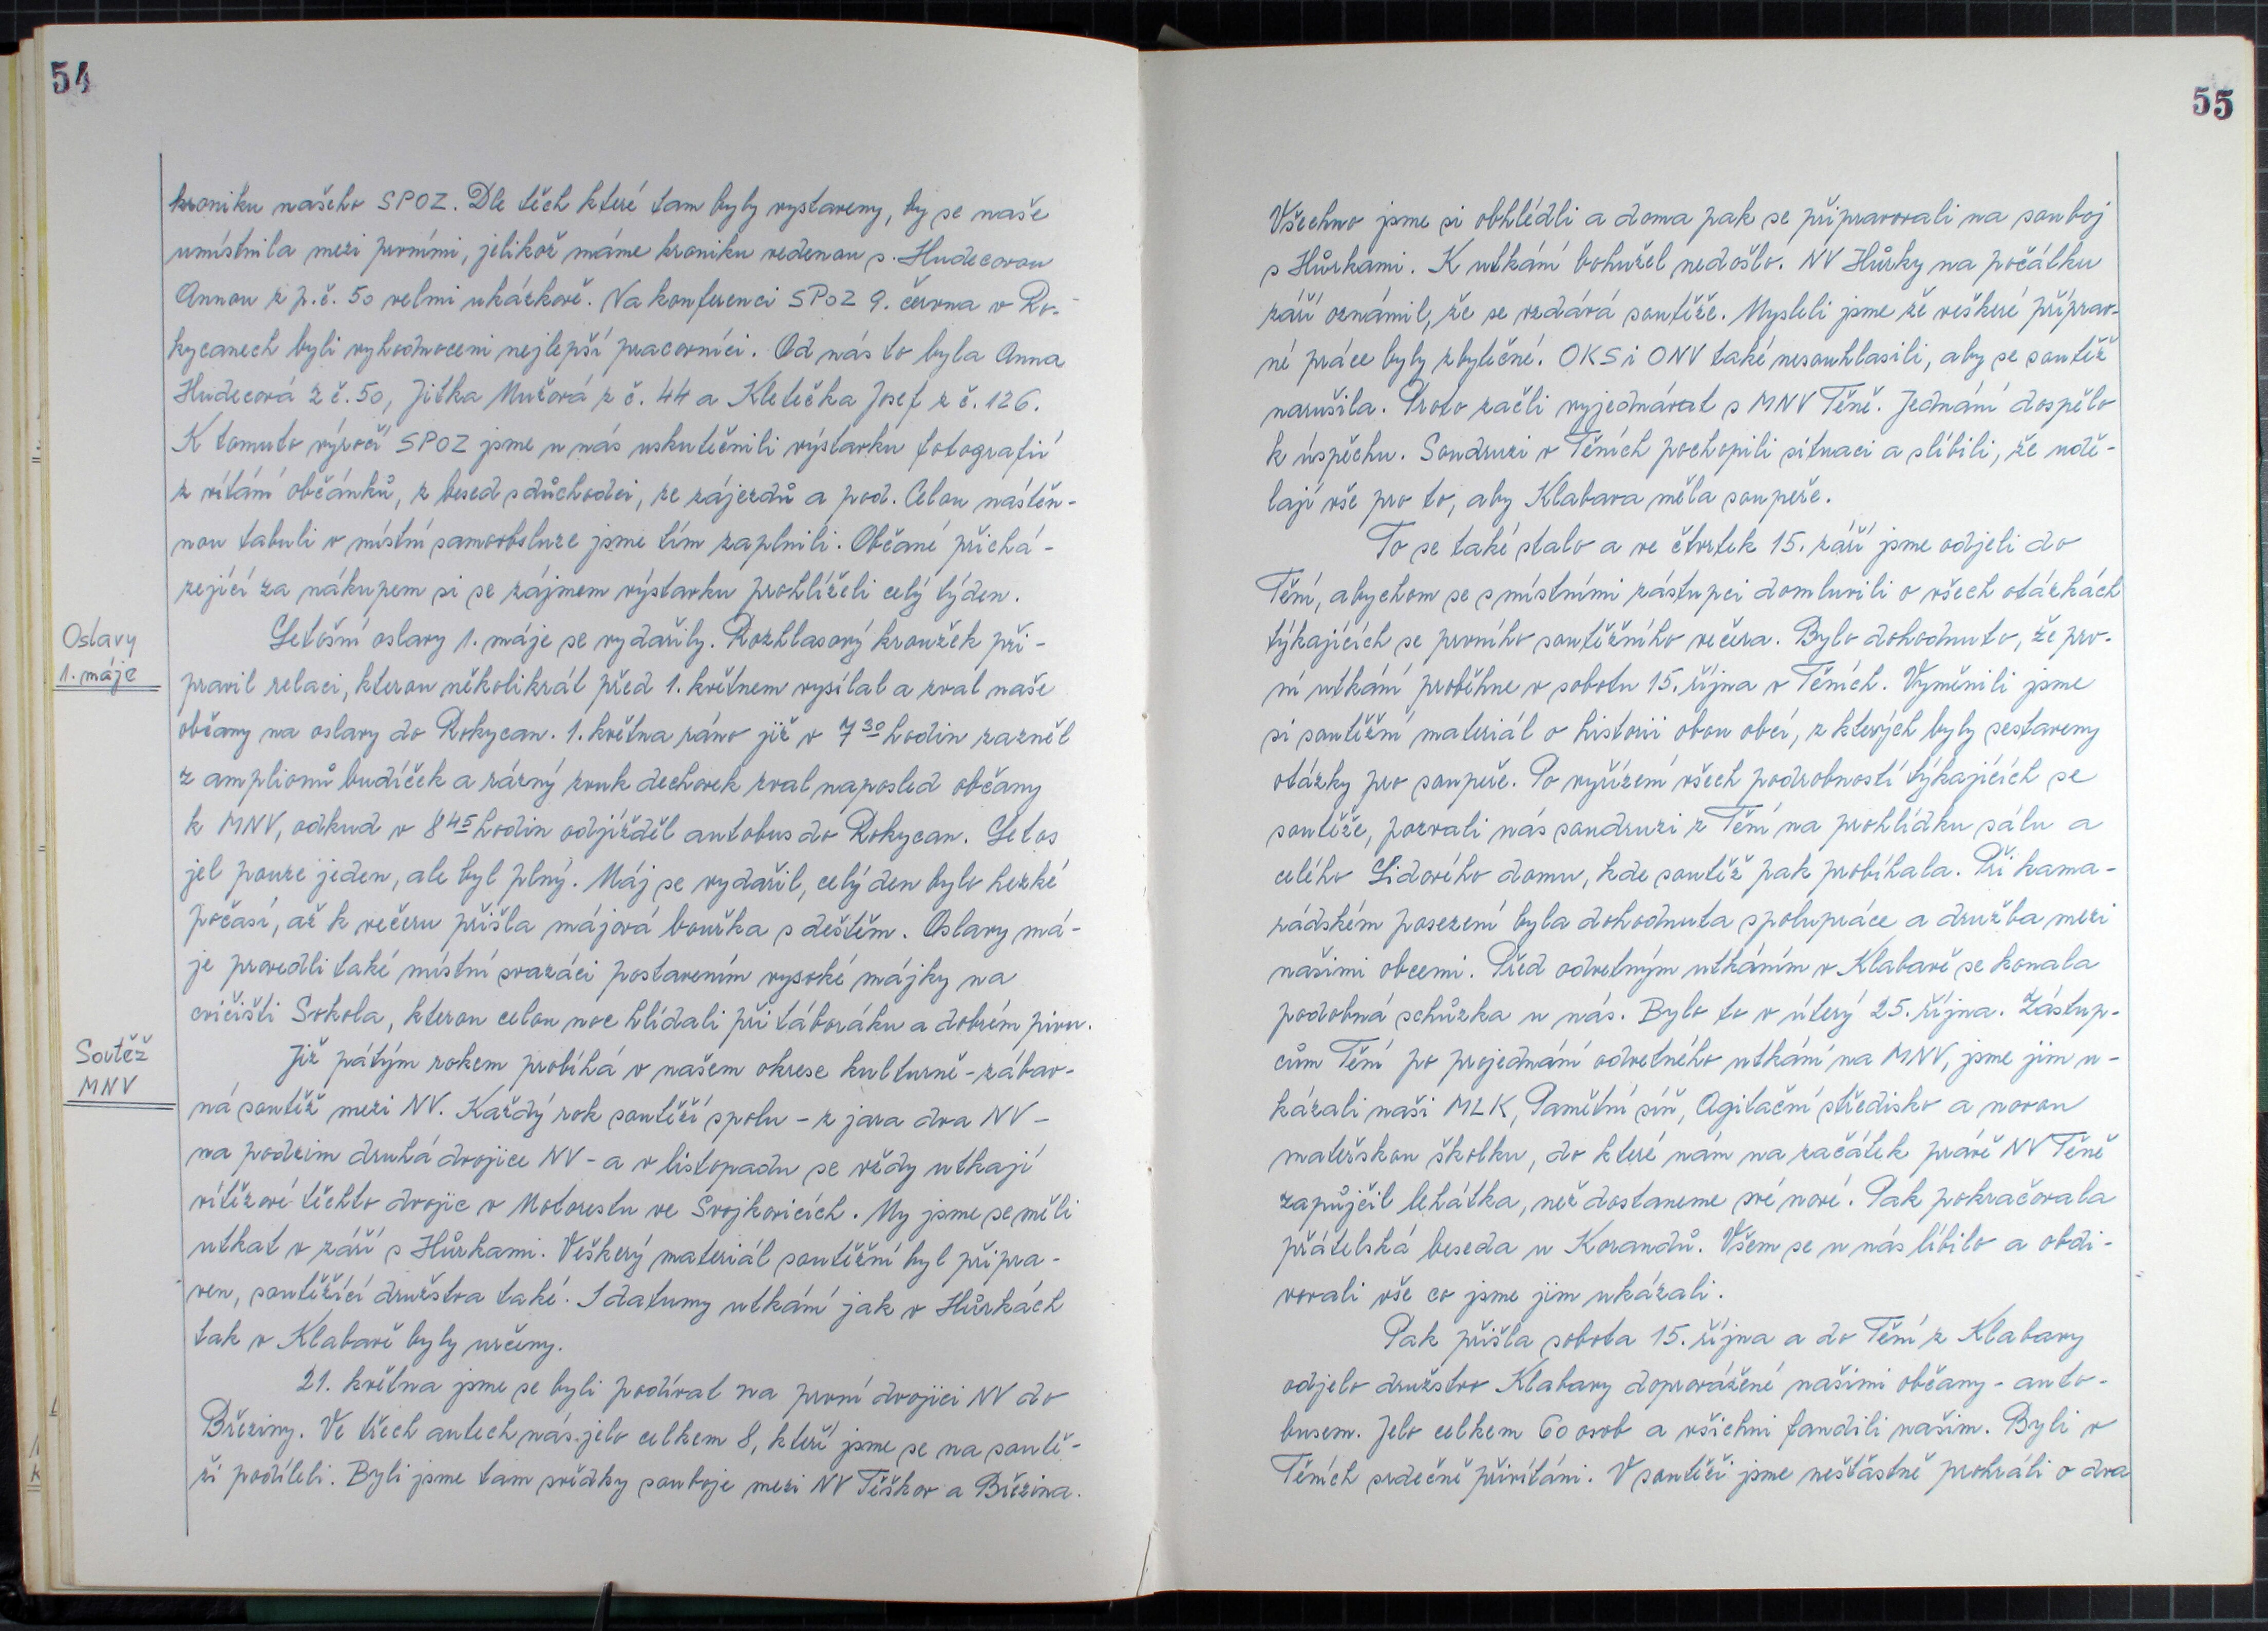 54
kroniku našeho SPOZ. Dle těch které tam byly vystaveny, by se naše
umístnila mezi prvními, jelikož máme kroniku vedenou s. Hudecovou
Annou z p.č. 50 velmi ukázkově. Na konferenci SPOZ 9. června v Ro-
kycanech byli vyhodnoceni nejlepší pracovníci. Od nás to byla Anna
Hudecová z č. 50, Jitka Mužová z č. 44 a Kletečka Josef z č. 126.
K tomuto výročí SPOZ jsme u nás uskutečnili výstavku fotografií
z vítání občánků, z besed s důchodci, ze zájezdů a pod. Celou nástěn-
nou tabuli v místní samoobsluze jsme tím zaplnili. Občané přichá-
zející za nákupem si se zájmem výstavku prohlíželi celý týden.
Oslavy
1. máje
Letošní oslavy 1. máje se vydařily. Rozhlasový kroužek při-
pravil relaci, kterou několikrát před 1. květnem vysílal a zval naše
občany na oslavy do Rokycan. 1. května ráno již v 7 30 hodin zazněl
z amplionů budíček a rázný zvuk dechovek zval naposled občany
k MNV, odkud v 8 45 hodin odjížděl autobus do Rokycan. Letos
jel pouze jeden, ale byl plný. Máj se vydařil, celý den bylo hezké
počasí, až k večeru přišla májová bouřka s deštěm. Oslavy má-
je provedli také místní svazáci postavením vysoké májky na
cvičišti Sokola, kterou celou noc hlídali při táboráku a dobrém pivu.
Soutěž
MNV
Již pátým rokem probíhá v našem okrese kulturně-zábav-
ná soutěž mezi NV. Každý rok soutěží spolu - z jara dva NV -
na podzim druhá dvojice NV - a v listopadu se vždy utkají
vítězové těchto dvojic v Motorestu ve Svojkovicích. My jsme se měli
utkat v září s Hůrkami. Veškerý materiál soutěžní byl připra-
ven, soutěžící družstva také. I datumy utkání jak v Hůrkách
tak v Klabavě byly určeny.
21. května jsme se byli podívat na první dvojici NV do
Březiny. Ve třech autech nás jelo celkem 8, kteří jsme se na soutě-
ži podíleli. Byli jsme tam svědky souboje mezi NV Těškov a Březina.
55
Všechno jsme si obhlédli a doma pak se připravovali na souboj
s Hůrkami. K utkání bohužel nedošlo. NV Hůrky na počátku
září oznámil, že se vzdává soutěže. Mysleli jsme že veškeré příprav-
né práce byly zbytečné. OKS i ONV také nesouhlasili, aby se soutěž
narušila. Proto začli vyjednávat s MNV Těně. Jednání dospělo
k úspěchu. Soudruzi v Těních pochopili situaci a slíbili, že udě-
lají vše pro to, aby Klabava měla soupeře.
To se také stalo a ve čtvrtek 15. září jsme odjeli do
Tění, abychom se s místními zástupci domluvili o všech otázkách
týkajících se prvního soutěžního večera. Bylo dohodnuto, že prv-
ní utkání proběhne v sobotu 15. října v Těních. Vyměnili jsme
si soutěžní materiál o historii obou obcí, z kterých byly sestaveny
otázky pro soupeře. Po vyřízení všech podrobností týkajících se
soutěže, pozvali nás soudruzi z Tění na prohlídku sálu a
celého Lidového domu, kde soutěž pak probíhala. Při kama-
rádském posezení byla dohodnuta spolupráce a družba mezi
našimi obcemi. Před odvetným utkáním v Klabavě se konala
podobná schůzka u nás. Bylo to v úterý 25. října. Zástup-
cům Tění po projednání odvetného utkání na MNV, jsme jim u-
kázali naši MLK, Pamětní síň, Agitační středisko a novou
mateřskou školku, do které nám na začátek právě NV Těně
zapůjčil lehátka, než dostaneme své nové. Pak pokračovala
přátelská beseda u Korandů. Všem se u nás líbilo a obdi-
vovali vše co jsme jim ukázali.
Pak přišla sobota 15. října a do Tění z Klabavy
odjelo družstvo Klabavy doprovázené našimi občany - auto-
busem. Jelo celkem 60 osob a všichni fandili našim. Byli v
Těních srdečně přivítáni. V soutěži jsme nešťastně prohráli o dva